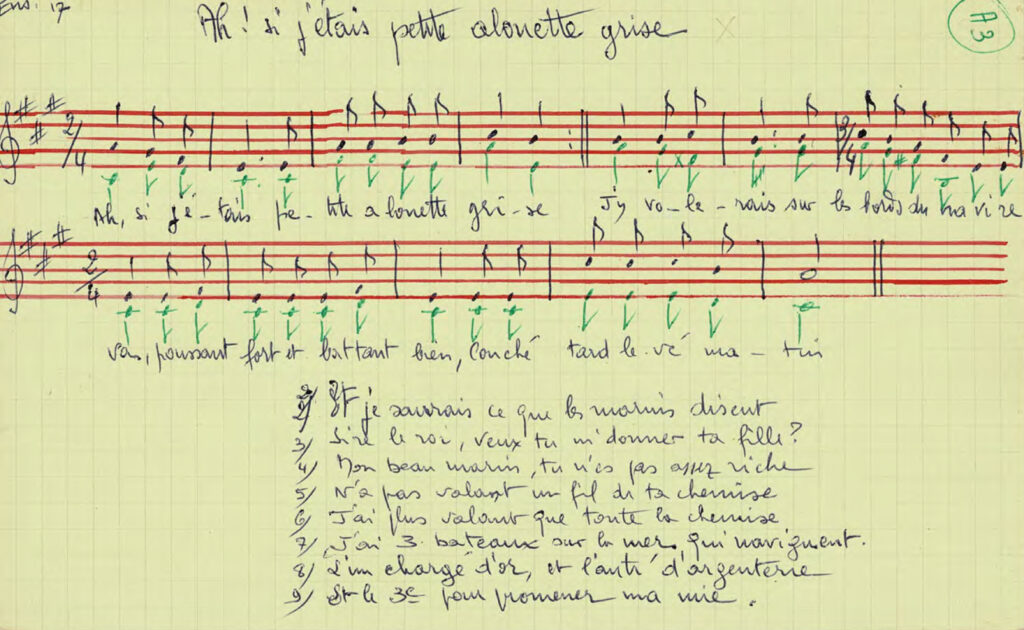 Ens. 17
Ah ! si j'étais petite alouette grise
A3
2/4 3/4
Ah, si j'é-tais pe-tite alouette gri-se J'y vo-le-rais sur les bords du navire
2/4
vas, poussant fort et battant bien, couché tard le-vé ma-tin
2/ Et je saurais ce que les marins disent
3/ Sire le roi, veux tu m'donner ta fille ?
4/ Mon beau marin, tu n'es pas assez riche
5/ N'a pas valant un fil de ta chemise
6/ J'ai plus valant que toute la chemise
7/ J'ai 3 bateaux sur la mer, qui naviguent.
8/ L'un chargé d'or, et l'autr' d'argenterie
9/ Et le 3e pour promener ma mie.